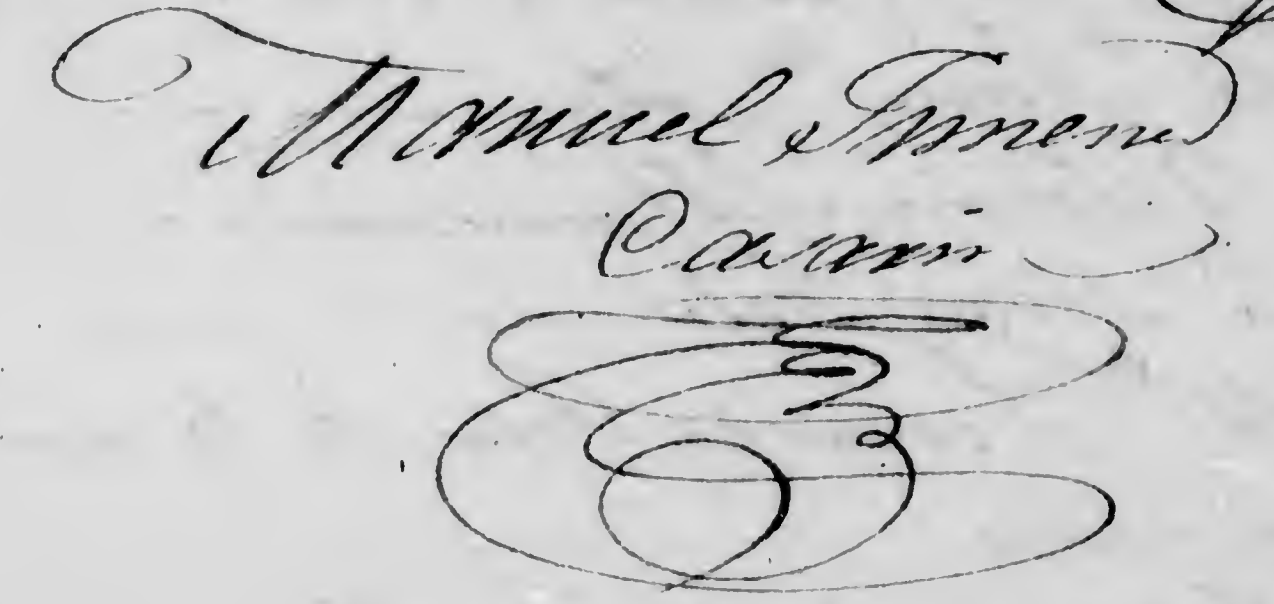 Manuel Ximeno
Casain